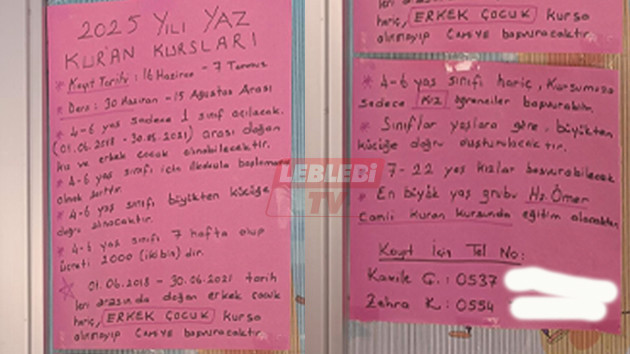 2025 YILI YAZ
KUR'AN KURSLARI
* Kayıt Tarihi: 16 Haziran - 7 Temmuz
* Ders: 30 Haziran - 15 Ağustos Arası
* 4-6 yaş sadece 1 sınıf açılacak.
(01.06.2018 - 30.05.2021) arası doğan
kız ve erkek çocuk alınabilecektir.
* 4-6 yaş sınıfı için ilkokula başlamamış
olmak şarttır.
* 4-6 yaş sınıfı büyükten küçüğe
doğru alınacaktır.
* 4-6 yaş sınıfı 7 hafta olup
ücreti 2000 (iki bin) dir.
01.06.2018 - 30.06.2021 tarih
leri arasında doğan erkek çocuk
hariç, ERKEK ÇOCUK kursa
alınmayıp CAMİYE başvuracaktır.
leri arasında doğan erkek çocuk
hariç, ERKEK ÇOCUK kursa
alınmayıp CAMİYE başvuracaktır.
* 4-6 yaş sınıfı hariç, kursumuza
sadece KIZ öğrenciler başvurabilir.
* Sınıflar yaşlara göre, büyükten
küçüğe doğru oluşturulacaktır.
* 7-22 yaş kızlar başvurabilecek
* En büyük yaş grubu Hz. Ömer
Camii Kuran Kursunda eğitim alacaktır.
Kayıt İçin Tel No:
Kamile Ç.: 0537
Zehra K.: 0554
LEBLEBİ
TV